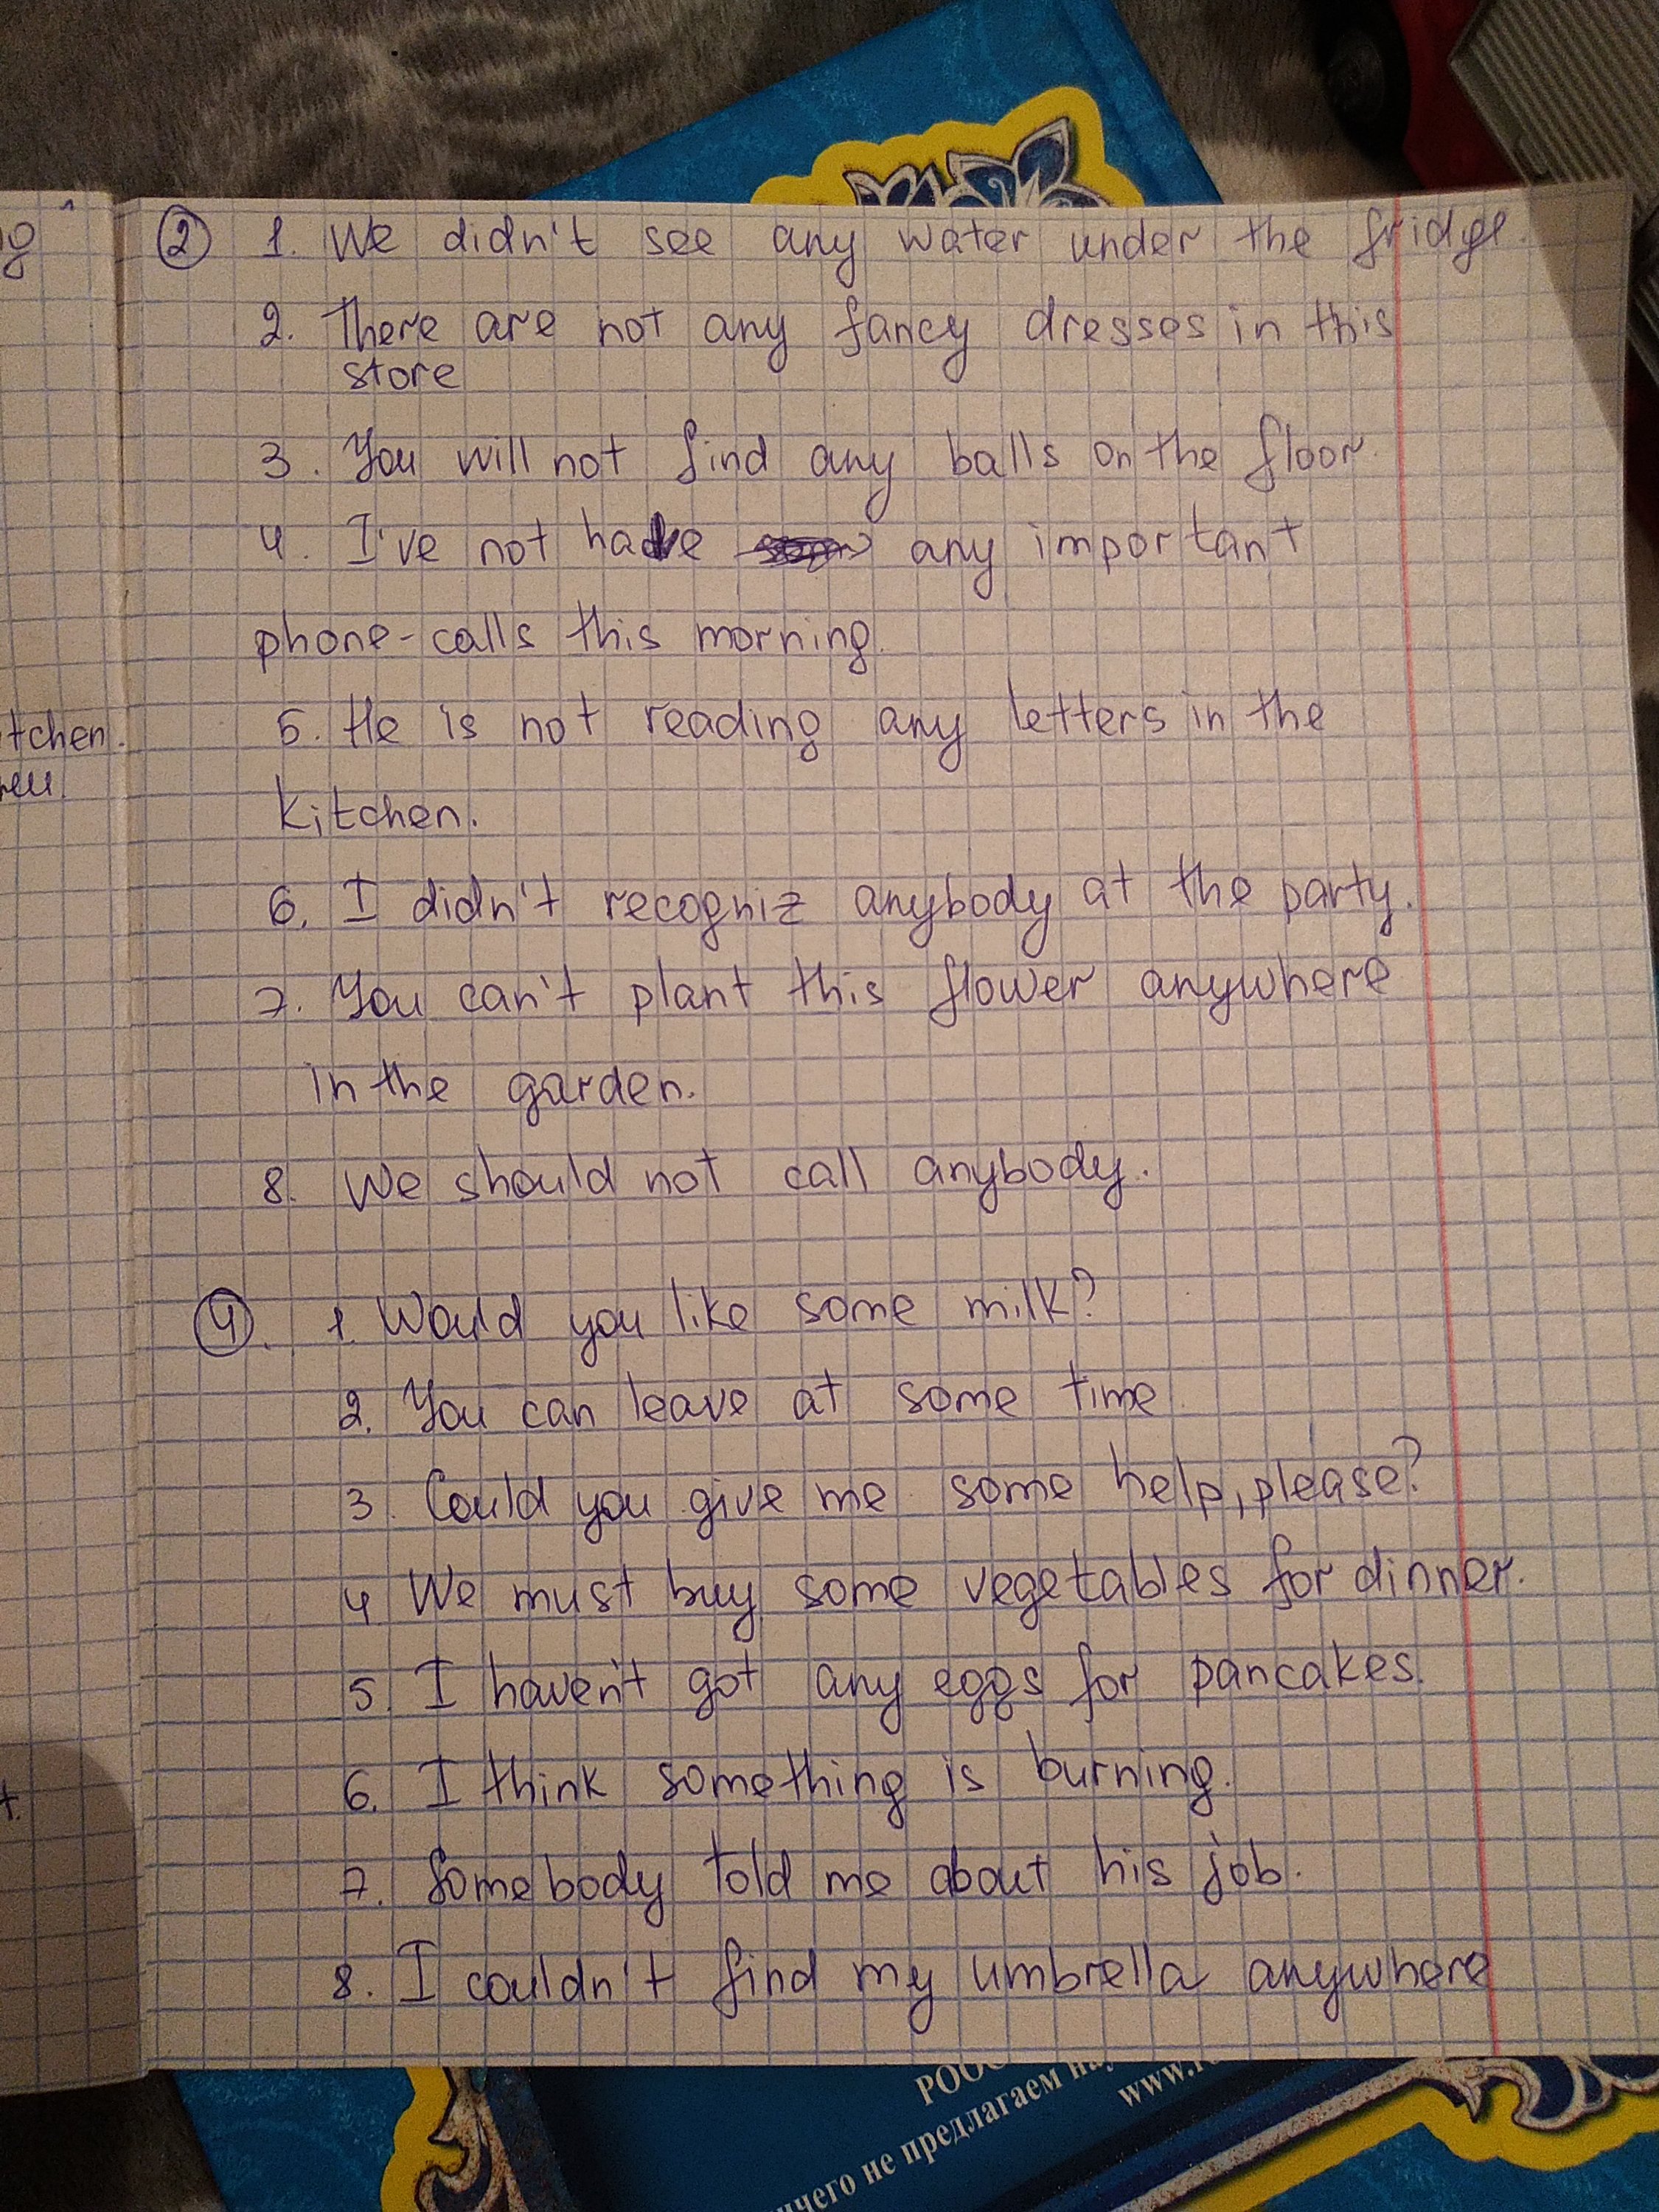 ② 1. We didn't see any water under the fridge.
2. There are not any fancy dresses in this
store
3. You will not find any balls on the floor.
4. I've not have any important
phone-calls this morning.
5. He is not reading any letters in the
kitchen.
6. I didn't recogniz anybody at the party.
7. You can't plant this flower anywhere
in the garden.
8. We should not call anybody.
④. 1. Would you like some milk?
2. You can leave at some time.
3. Could you give me some help, please?
4 We must buy some vegetables for dinner.
5. I haven't got any eggs for pancakes.
6. I think something is burning.
7. Somebody told me about his job.
8. I couldn't find my umbrella anywhere
tchen.
не предлагаем
www.